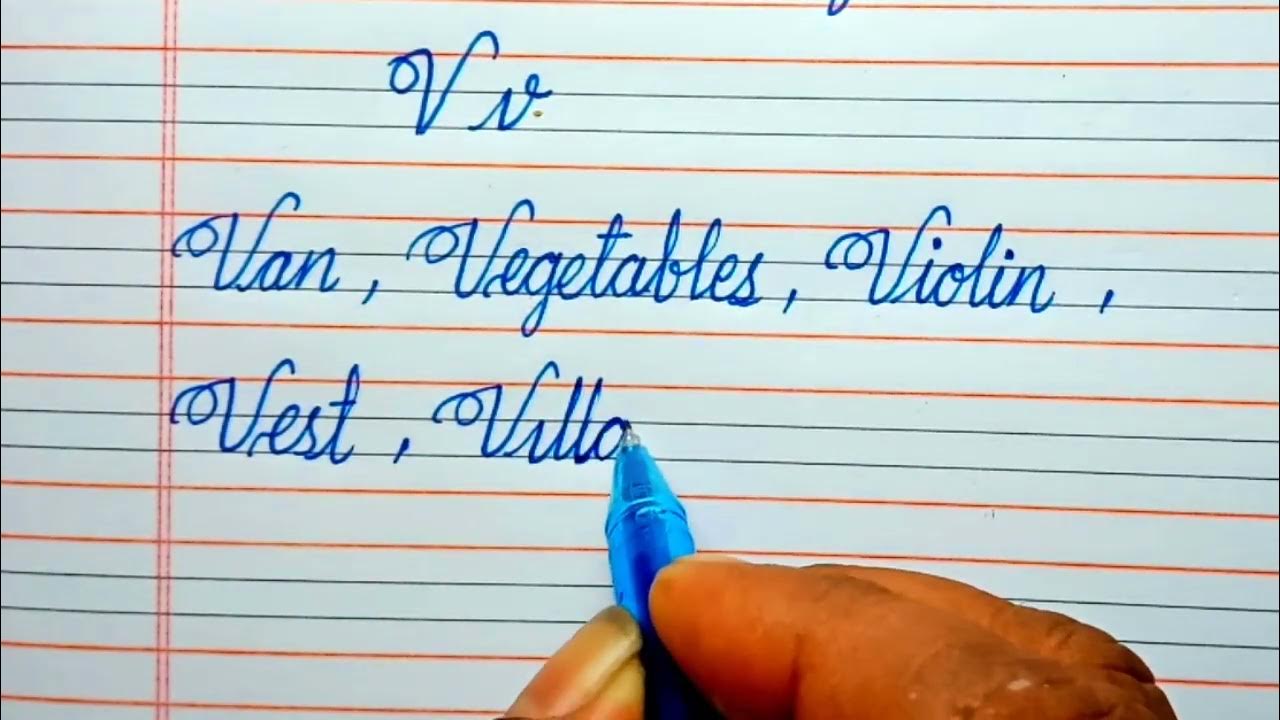 V v
Van , Vegetables , Violin ,
Vest , Villa